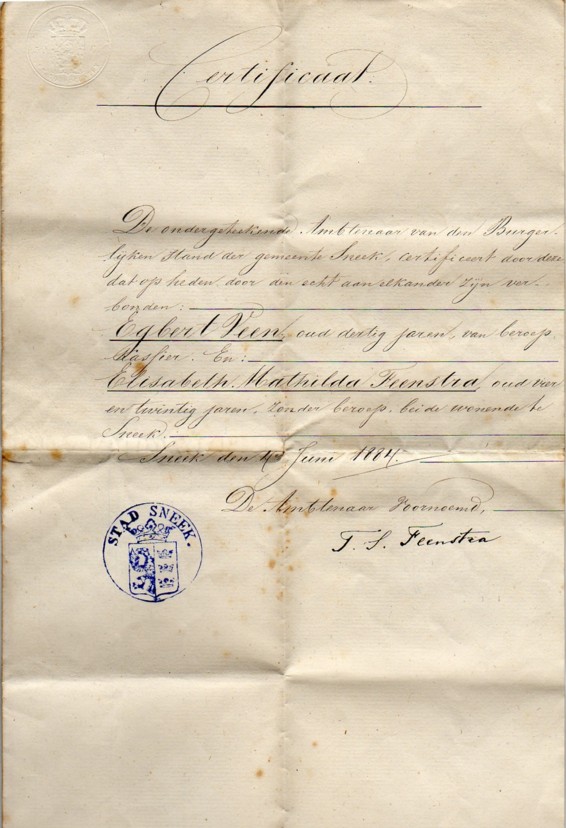 Certificaat.
De ondergeteekende Ambtenaar van den Burger-
lijken Stand der gemeente Sneek, certificeert door deze
dat op heden door den echt aan elkander zijn ver-
bonden:
Egbert Veen, oud dertig jaren, van beroep
En:
Elisabeth Mathilda Feenstra, oud vier
en twintig jaren, zonder beroep, beide wonende te
Sneek.
Sneek den Juni 1884.
De Ambtenaar voornoemd,
T. S. Feenstra
STAD SNEEK.